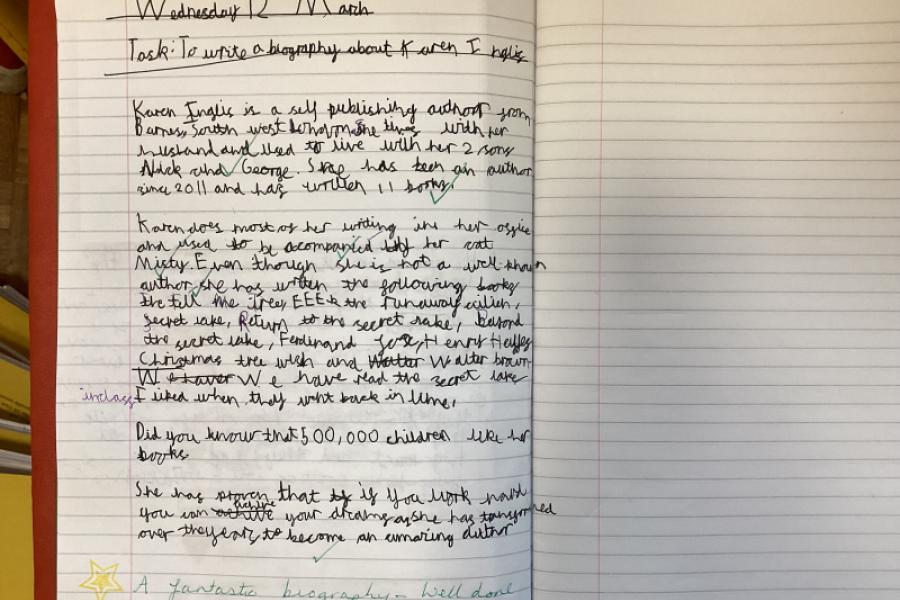 Wednesday 12 March
Task: To write a biography about Karen Inglis
Karen Inglis is a self publishing author from
Barnes, South west London. She lives with her
husband and used to live with her 2 sons
Nick and George. She has been an author
since 2011 and has written 11 books.
Karen does most of her writing in her office
and used to be acompanied by her cat
Misty. Even though she is not a well known
author, she has written the following books
the tell me tree, EEEk the runaway alien,
Secret lake, Return to the secret lake, Beyond
the secret lake, Ferdinand Henry
Christmas tree wish and Walter Walter brown
We have read the secret lake
in class I liked when they went back in time.
Did you know that 500,000 children like her
books
She has proven that if you work hard
you can achive your dreams as she has
over the years to become an amazing author
A fantastic biography - Well done